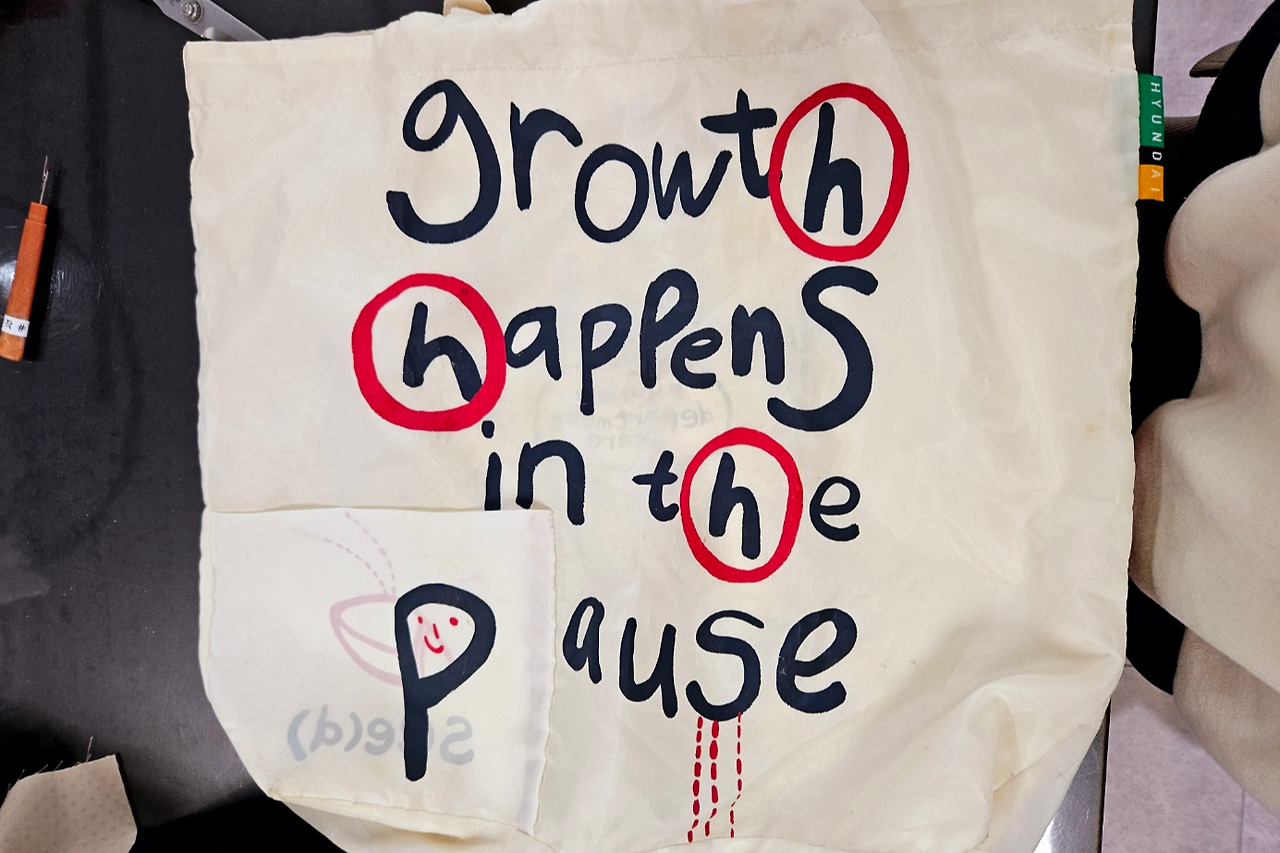 growth
happenS
in the
pause
HYUNDAI